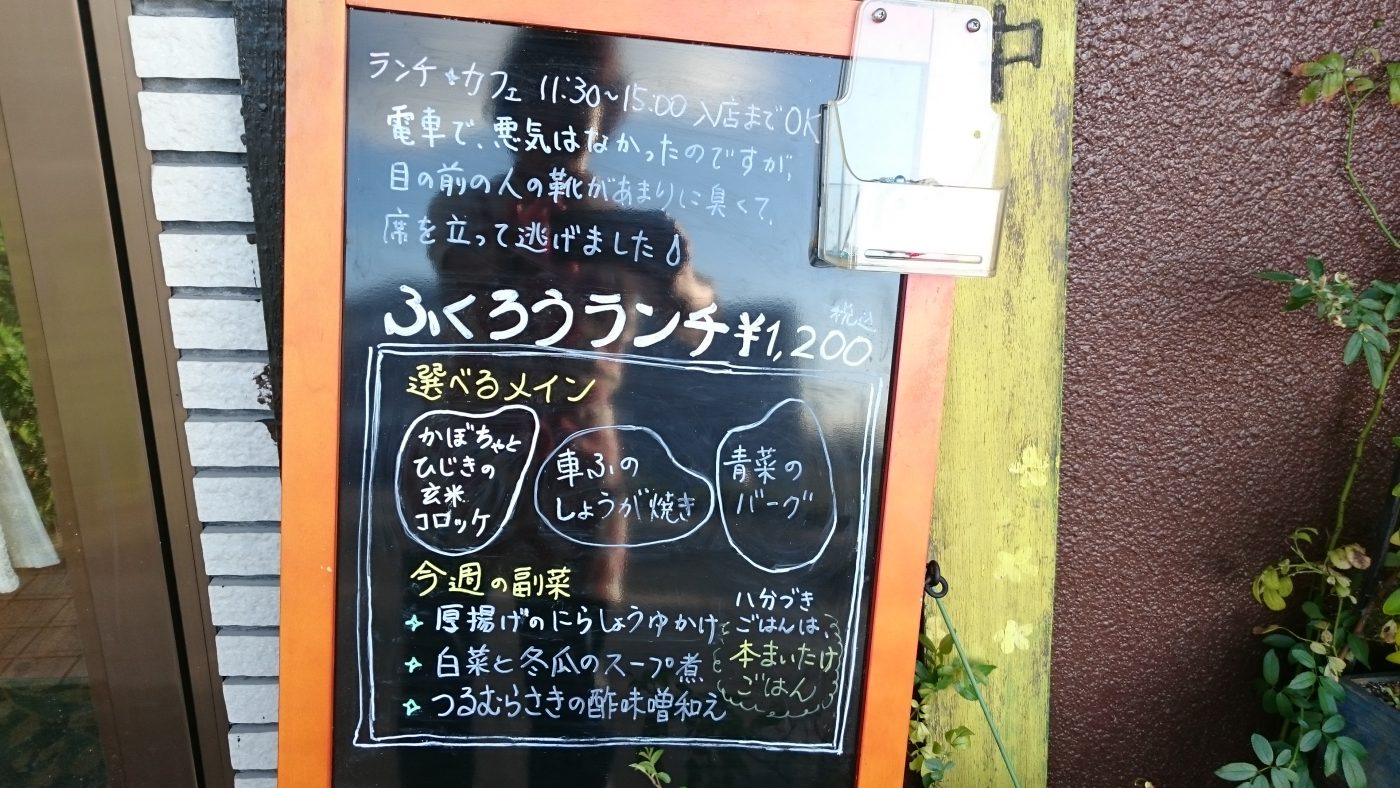 ランチ・カフェ 11:30~15:00 入店までOK
電車で、悪気はなかったのですが、
目の前の人の靴があまりに臭くて、
席を立って逃げました
ふくろうランチ ¥1,200 税込
選べるメイン
かぼちゃと
ひじきの
玄米
コロッケ
車ふの
しょうが焼き
青菜の
バーグ
今週の副菜
厚揚げのにらしょうゆかけ
白菜と冬瓜のスープ煮
つるむらさきの酢味噌和え
八分づき
ごはんは、
本まいたけ
ごはん